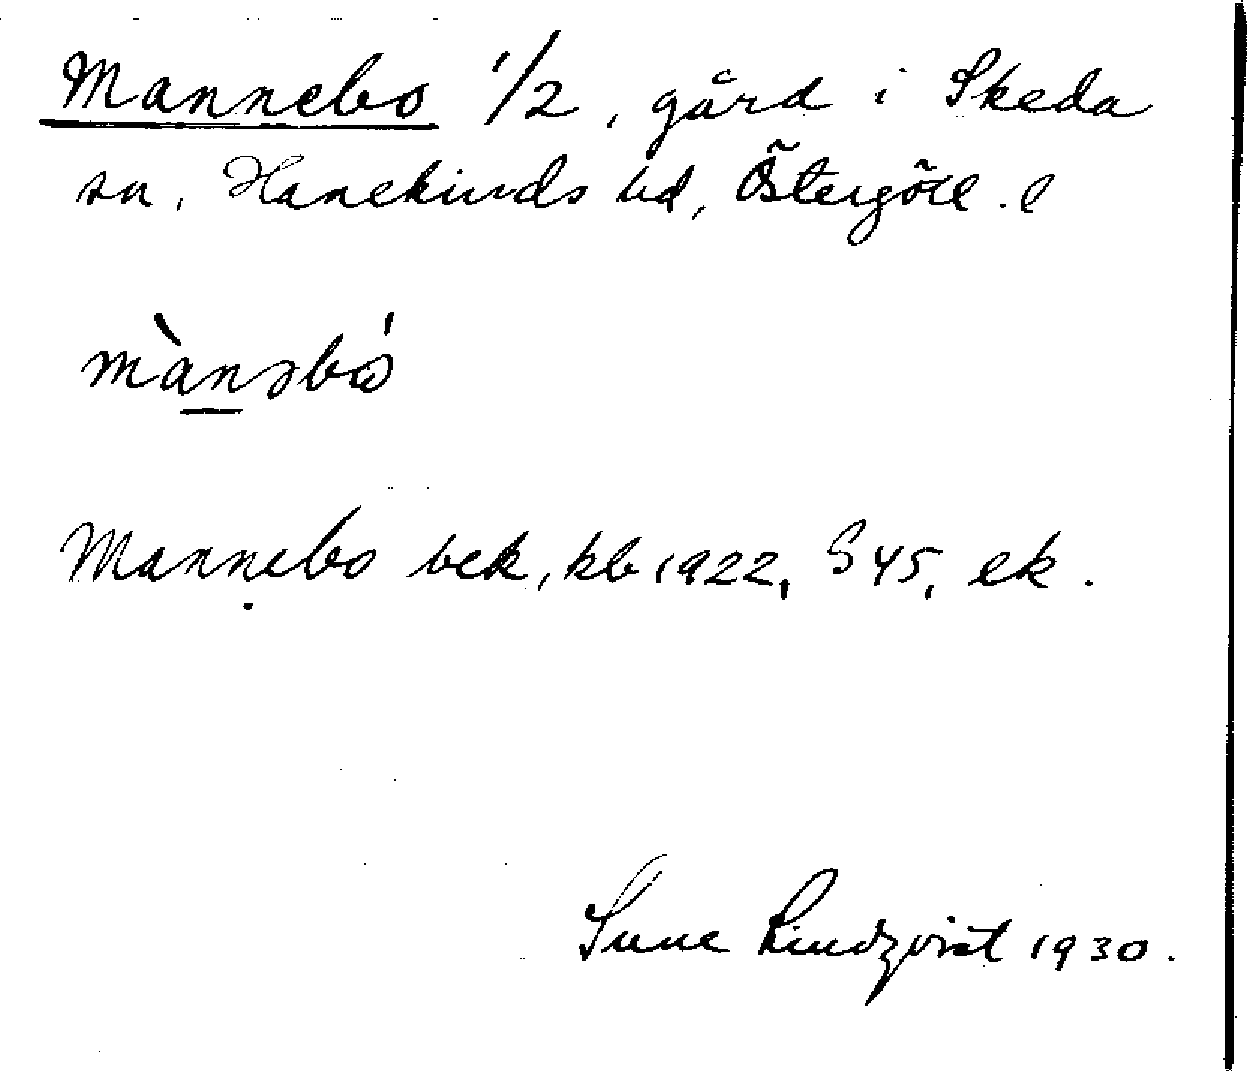 Mannebo 1/2, gård i Skeda
sn, Hanekinds hd, Östergötl. l
mànəbó
Mannebo bek, kb 1922, S 45, ek.
Sune Lindqvist 1930.